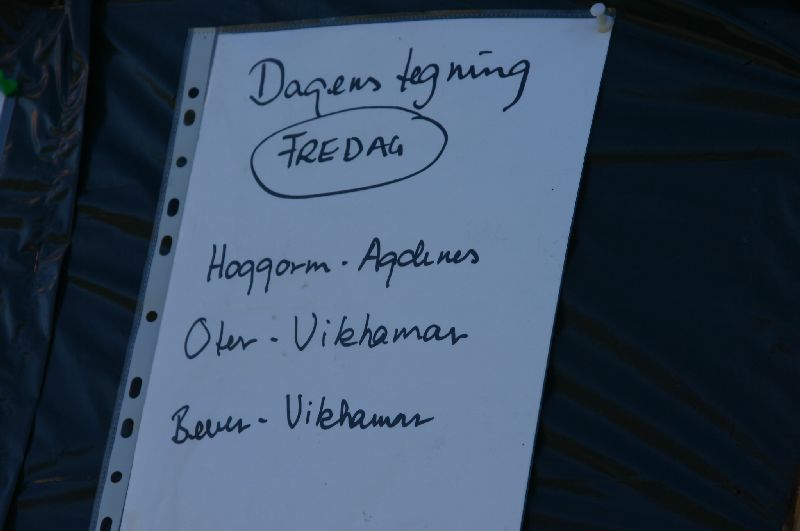 Dagens tegning
FREDAG
Hoggorm - Agdenes
Oter - Vikhamar
Bever - Vikhamar